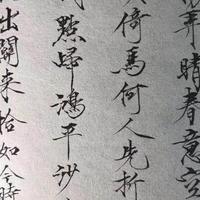 弄晴春意空
倚馬何人先折
點歸鴻平沙
出關来恰如今時